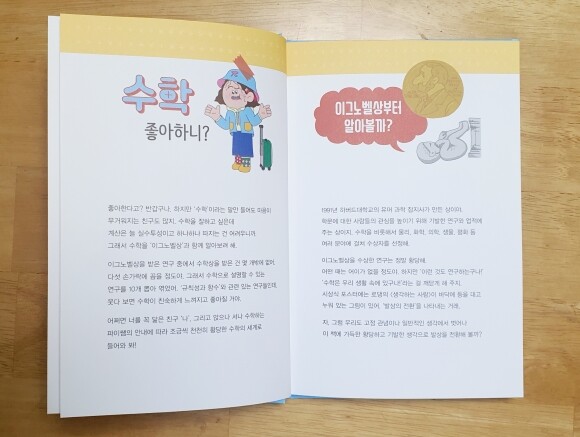 수학
좋아하니?
좋아한다고? 반갑구나. 하지만 '수학'이라는 말만 들어도 마음이
무거워지는 친구도 많지. 수학을 잘하고 싶은데
계산은 늘 실수투성이고 하나하나 따지는 건 어려우니까.
그래서 수학을 '이그노벨상'과 함께 알아보려 해.
이그노벨상을 받은 연구 중에서 수학상을 받은 건 몇 개밖에 없어.
다섯 손가락에 꼽을 정도야. 그래서 수학으로 설명할 수 있는
연구를 10개 뽑아 엮었어. '규칙성과 함수'와 관련 있는 연구들인데,
웃다 보면 수학이 친숙하게 느껴지고 좋아질 거야.
어쩌면 너를 꼭 닮은 친구 '나', 그리고 앉으나 서나 수학하는
파이쌤의 안내에 따라 조금씩 천천히 황당한 수학의 세계로
들어와 봐!
이그노벨상부터
알아볼까?
1991년 하버드대학교의 유머 과학 잡지사가 만든 상이야.
학문에 대한 사람들의 관심을 높이기 위해 기발한 연구와 업적에
주는 상이지. 수학을 비롯해서 물리, 화학, 의학, 생물, 평화 등
여러 분야에 걸쳐 수상자를 선정해.
이그노벨상을 수상한 연구는 정말 황당해.
어떤 때는 어이가 없을 정도야. 하지만 '이런 것도 연구하는구나!'
'수학은 우리 생활 속에 있구나!'라는 걸 깨닫게 해 주지.
시상식 포스터에는 로댕의 〈생각하는 사람〉이 바닥에 등을 대고
누워 있는 그림이 있어. '발상의 전환'을 나타내는 거래.
자, 그럼 우리도 고정 관념이나 일반적인 생각에서 벗어나
이 책에 가득한 황당하고 기발한 생각으로 발상을 전환해 볼까?